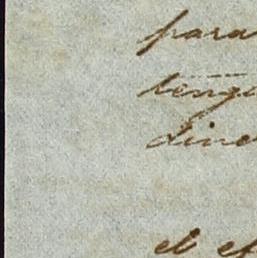 para
teng
dine
el ef